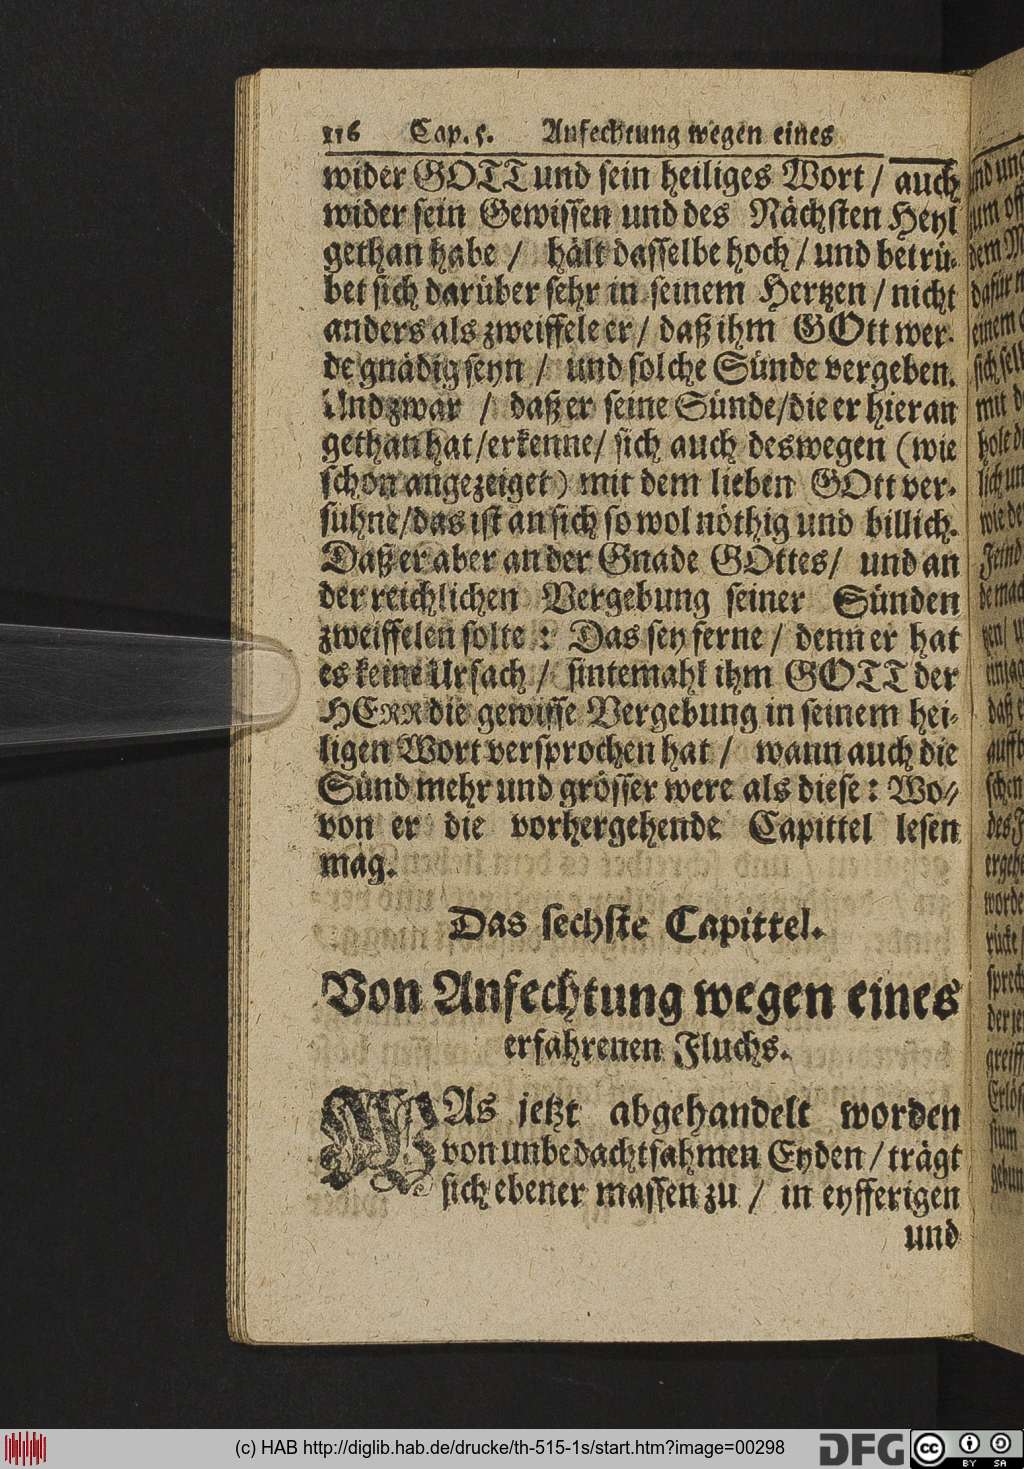 116 Cap. 5. Anfechtung wegen eines
wider GOTT und sein heiliges Wort / auch
wider sein Gewissen und des Nächsten Heyl
gethan habe / hält dasselbe hoch / und betrü-
bet sich darüber sehr in seinem Hertzen / nicht
anders als zweiffele er / daß ihm GOtt wer-
de gnädig seyn / und solche Sünde vergeben.
Und zwar / daß er seine Sünde/die er hieran
gethan hat/erkenne/ sich auch deswegen (wie
schon angezeiget) mit dem lieben GOtt ver-
sühne/das ist an sich so wol nöthig und billich.
Daß er aber an der Gnade GOttes/ und an
der reichlichen Vergebung seiner Sünden
zweiffelen solte : Das sey ferne / denn er hat
es keine Ursach / sintemahl ihm GOTT der
HERR die gewisse Vergebung in seinem hei-
ligen Wort versprochen hat / wann auch die
Sünd mehr und grösser were als diese : Wo-
von er die vorhergehende Capittel lesen
mag.
Das sechste Capittel.
Von Anfechtung wegen eines
erfahrenen Fluchs.
WAs jetzt abgehandelt worden
von unbedachtsahmen Eyden / trägt
sich ebener massen zu / in eyfferigen
und
(c) HAB http://diglib.hab.de/drucke/th-515-1s/start.htm?image=00298
DFG
cc BY SA